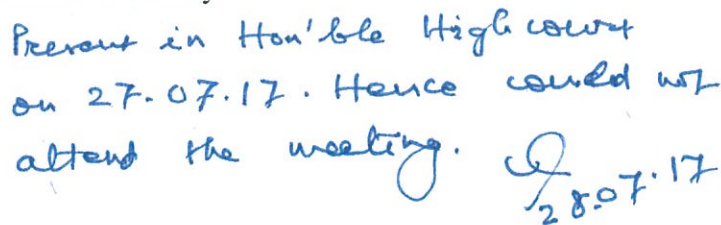 Present in Hon'ble High court
on 27.07.17. Hence could not
attend the meeting.
28.07.17